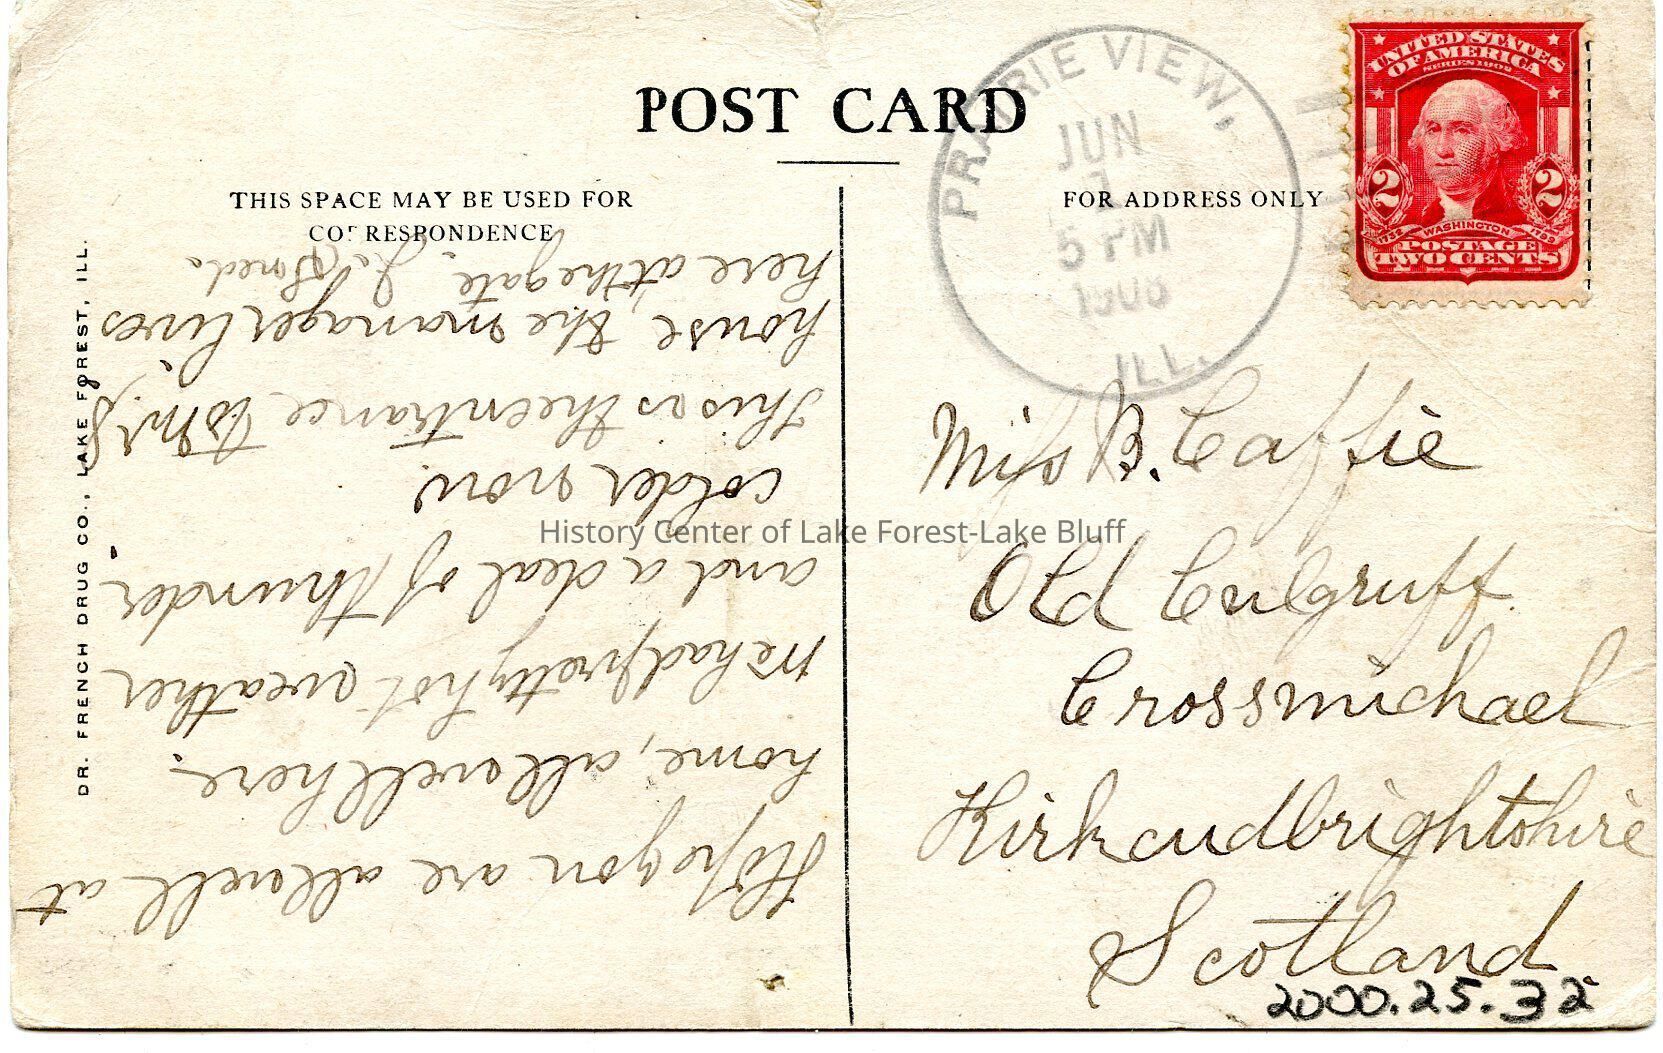 POST CARD
THIS SPACE MAY BE USED FOR
CORRESPONDENCE
FOR ADDRESS ONLY
PRAIRIE VIEW,
JUN
1
5 PM
1908
ILL.
UNITED STATES
OF AMERICA
SERIES 1902
2 2
1732 WASHINGTON 1799
POSTAGE
TWO CENTS
DR. FRENCH DRUG CO., LAKE FOREST, ILL.
Hope you are all well at
home, all well here.
We had pretty hot weather
and a deal of thunder
colder now.
This is the entrance to Mr
house, the manager lives
here at the gate.
Miss B. Caffie
Old Culgruff
Crossmichael
Kirkcudbrightshire
Scotland
2000.25.32
History Center of Lake Forest-Lake Bluff